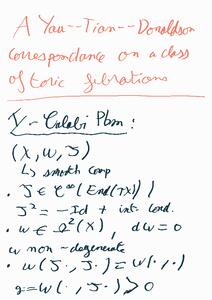 A Yau--Tian--Donaldson
correspondance on a class
of toric fibrations
I - Calabi Pbm :
(X, ω, J)
↳ smooth comp
• J ∈ C^∞(End(TX))
J² = -Id + int. cond.
• ω ∈ Ω²(X), dω = 0
ω non-degenerate
• ω(J·, J·) = ω(·,·)
g = ω(·, J·) > 0